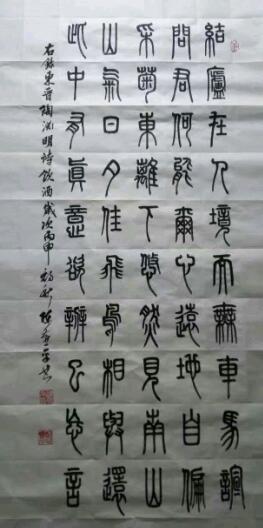 結廬在人境而無車馬諠
問君何能爾心遠地自偏
采菊東籬下悠然見南山
山氣日夕佳飛鳥相與還
此中有眞意欲辯已忘言
右錄東晉陶淵明詩飲酒歲次丙申初秋